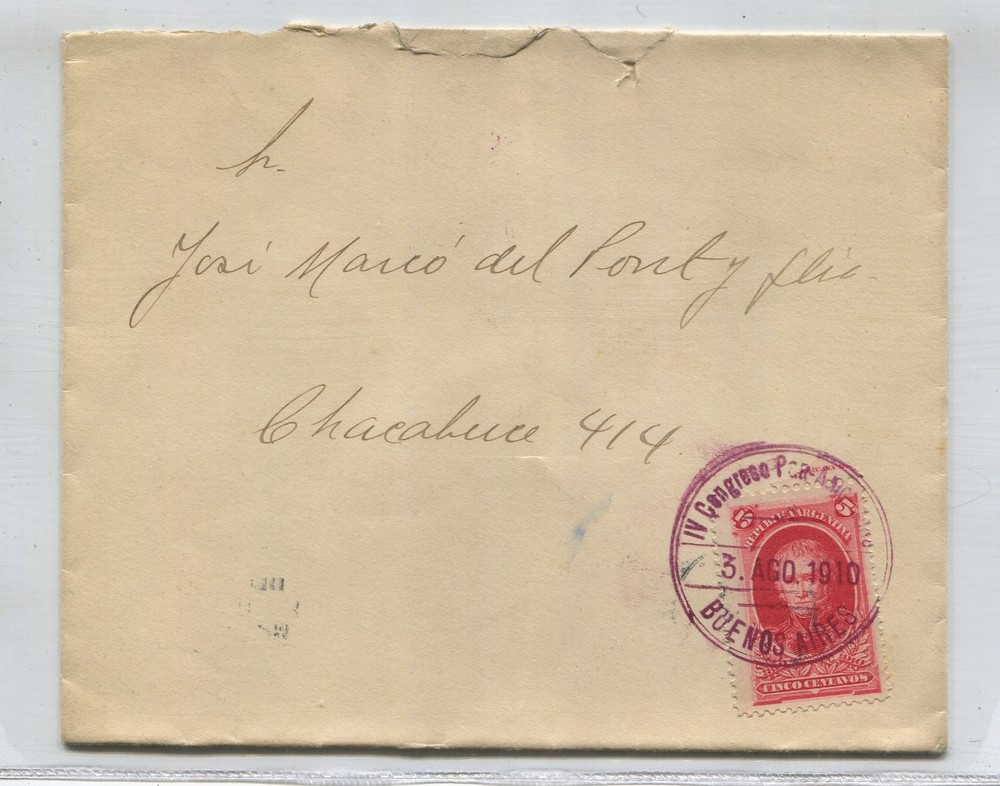 Sr.
José Marcó del Pont y flia.
Chacabuco 414
IV Congreso Pan-Am
3. AGO. 1910
BUENOS AIRES
5 5
REPUBLICA ARGENTINA
CINCO CENTAVOS